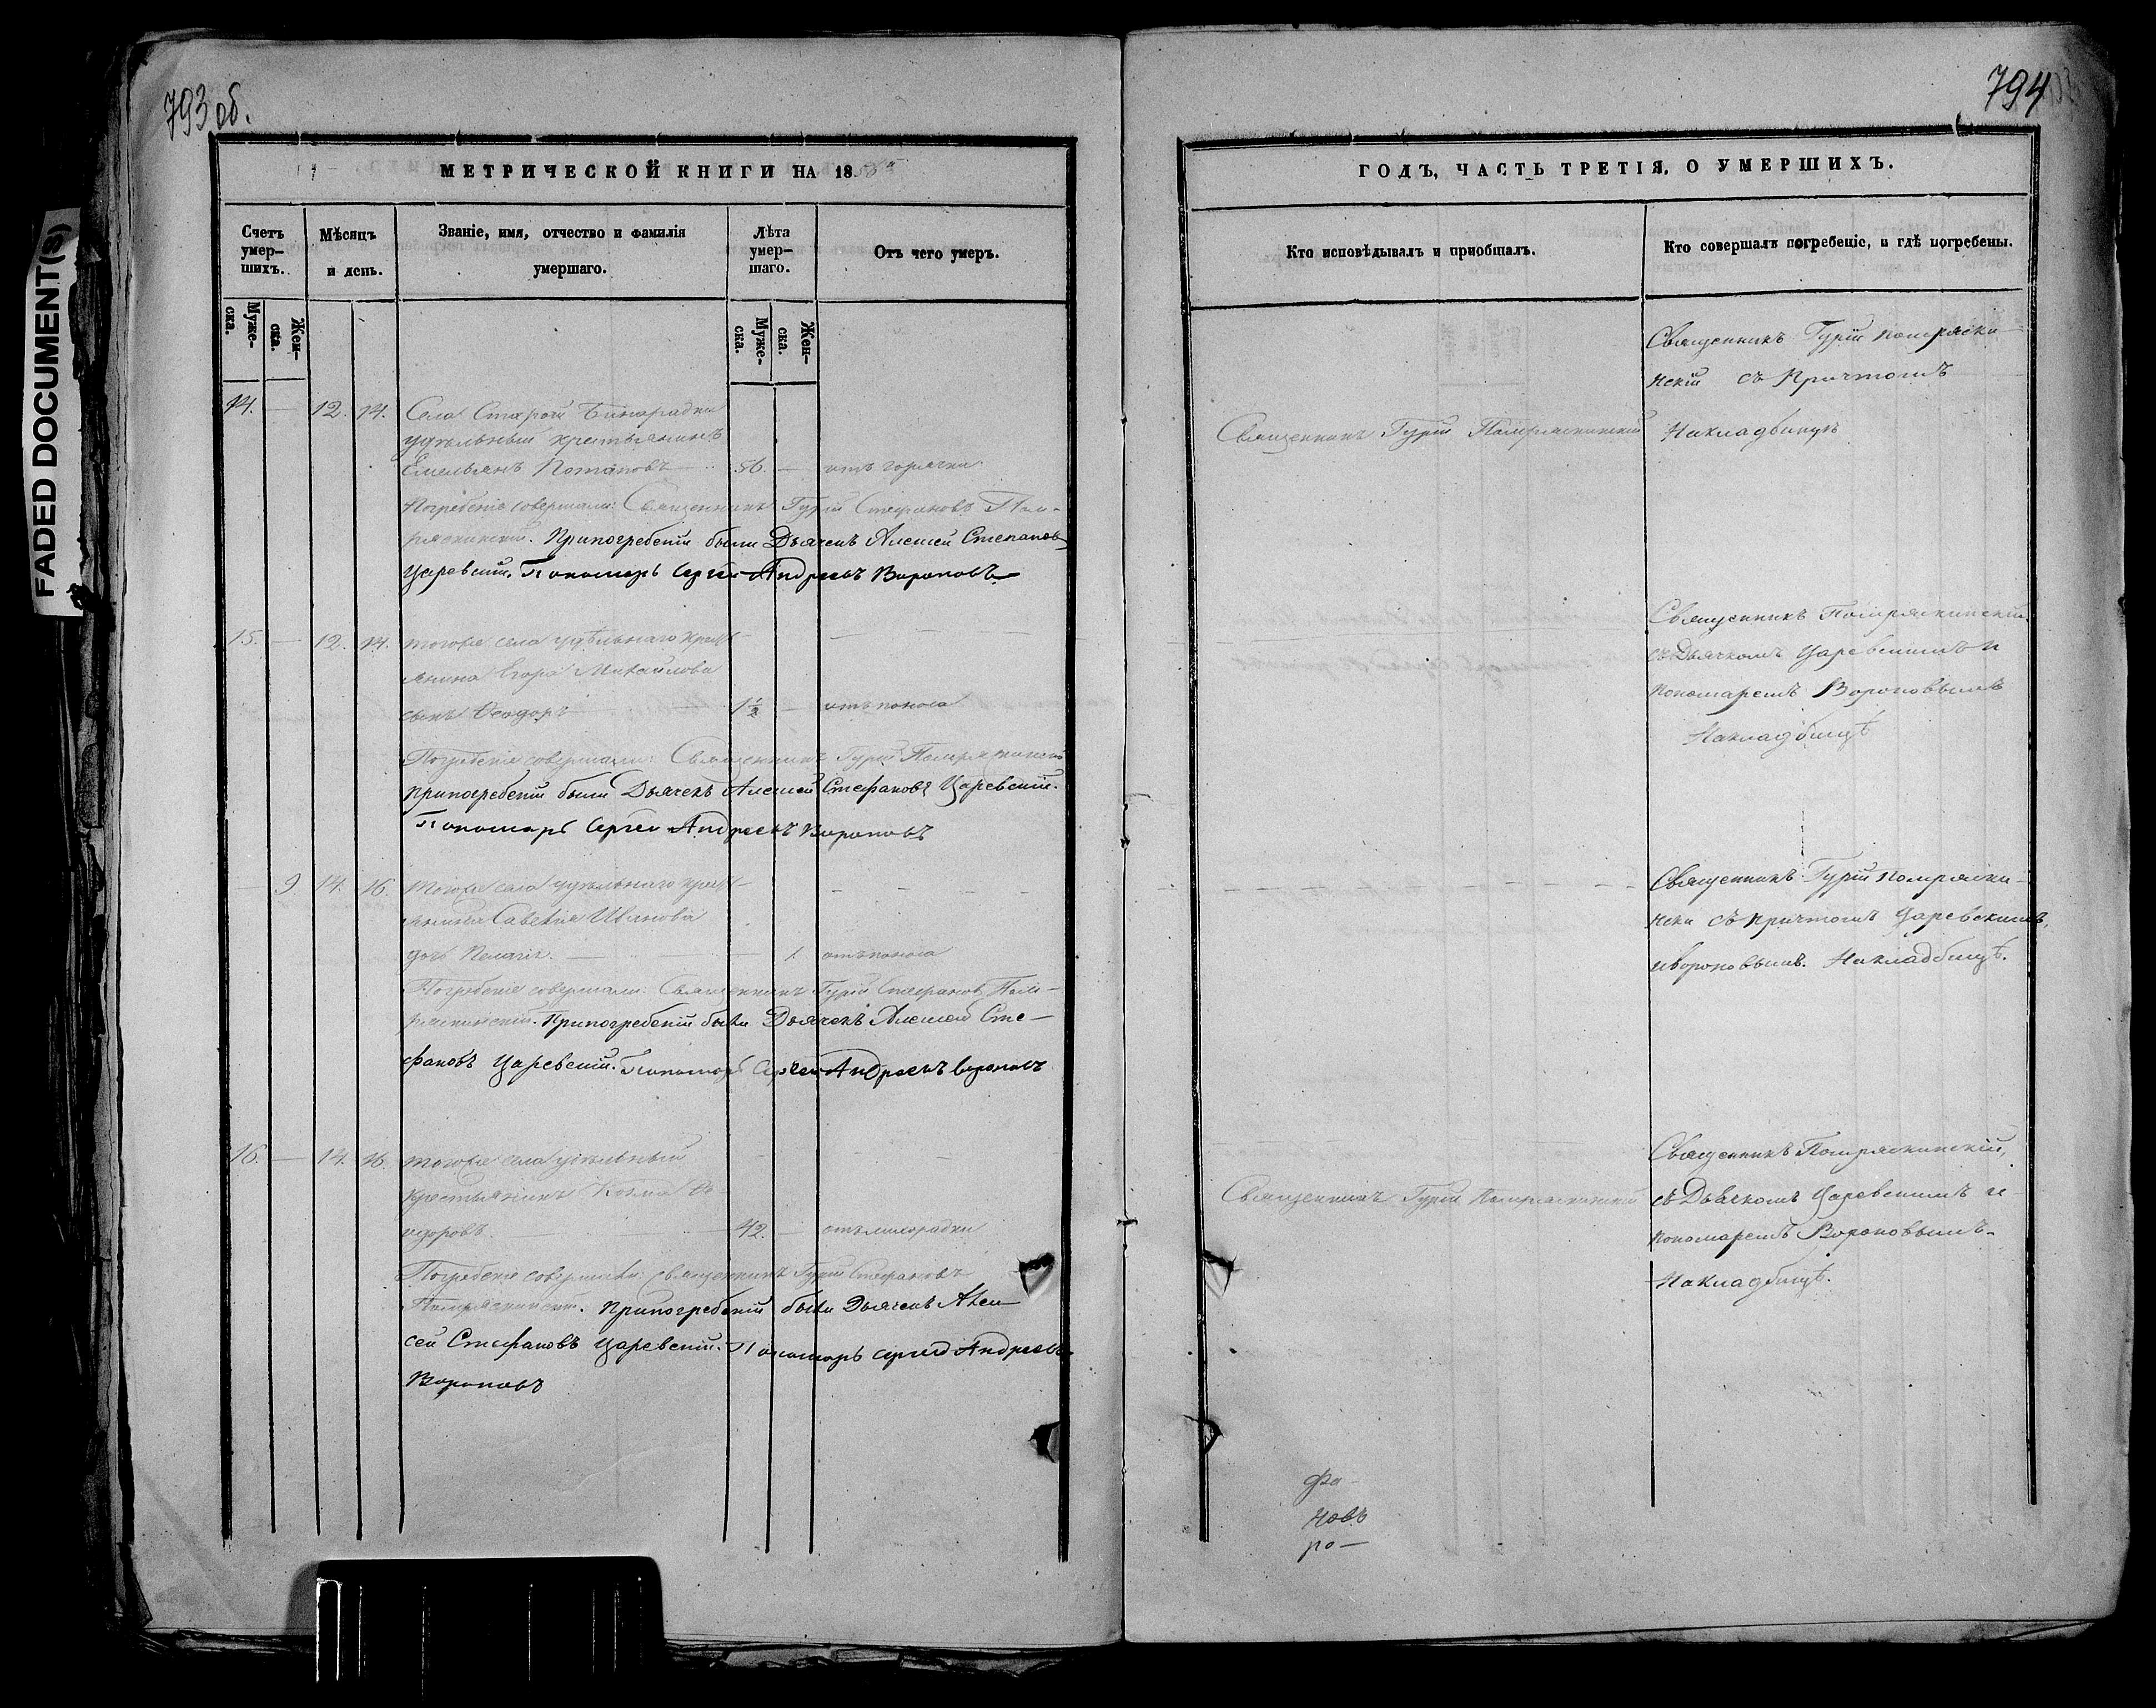 793 об.
794
FADED DOCUMENT(S)
МЕТРИЧЕСКОЙ КНИГИ НА 18
Счетъ умер-шихъ.
Мѣсяцъ и день.
Званіе, имя, отчество и фамилія умершаго.
Лѣта умер-шаго.
Отъ чего умеръ.
Муже-ска.
Жен-ска.
Муже-ска.
Жен-ска.
14. — 12. 14. Села Старой Бинарадки
удѣльный крестьянинъ
Емельянъ Потаповъ 56. — отъ горячки
Погребеніе совершали: Священникъ Гурій Стефановъ Пом-
ряскинскій. Припогребеніи были Дьячекъ Алексей Степановъ
Царевскій. Пономарь Сергей Андреевъ Вороновъ
15. — 12. 14. тогоже села удѣльнаго крест-
янина Егора Михайлова
сынъ Ѳеодоръ 1 1/2 — отъ поноса
Погребеніе совершали: Священникъ Гурій Помряскинскій
припогребеніи были Дьячекъ Алексей Стефановъ Царевскій.
Пономарь Сергей Андреевъ Вороновъ
— 9 14. 16. тогоже села удѣльнаго крест-
янина Савелія Иванова
дочь Пелагія. — 1. отъ поноса
Погребеніе совершали: Священникъ Гурій Стефановъ Пом-
ряскинскій. Припогребеніи были Дьячекъ Алексей Сте-
фановъ Царевскій. Пономарь Сергей Андреевъ Вороновъ
16. — 14. 16. тогоже села удѣльный
крестьянинъ Козма Ѳе-
одоровъ. 42. — отъ лихорадки
Погребеніе совершали: священникъ Гурій Стефановъ
Помряскинскій. Припогребеніи были Дьячекъ Алек-
сей Стефановъ Царевскій. Пономарь Сергей Андреевъ
Вороновъ
ГОДЪ, ЧАСТЬ ТРЕТІЯ, О УМЕРШИХЪ.
Кто исповѣдывалъ и пріобщалъ.
Кто совершалъ погребеніе, и гдѣ погребены.
Священникъ Гурій Помряски-
нскій съ Причтомъ
Священникъ Гурій Помряскинскій
Накладбищѣ
Священникъ Помряскинскій
съ Дьячкомъ Царевскимъ и
пономаремъ Вороновымъ
Накладбищѣ
Священникъ Гурій Помряски-
нски съ причтомъ Царевскимъ,
и Вороновымъ. Накладбищѣ.
Священникъ Помряскинскій,
Священникъ Гурій Помряскинскій
съ Дьячкомъ Царевскимъ и
пономаремъ Вороновымъ.
Накладбищѣ.
фа-
новъ
ро-